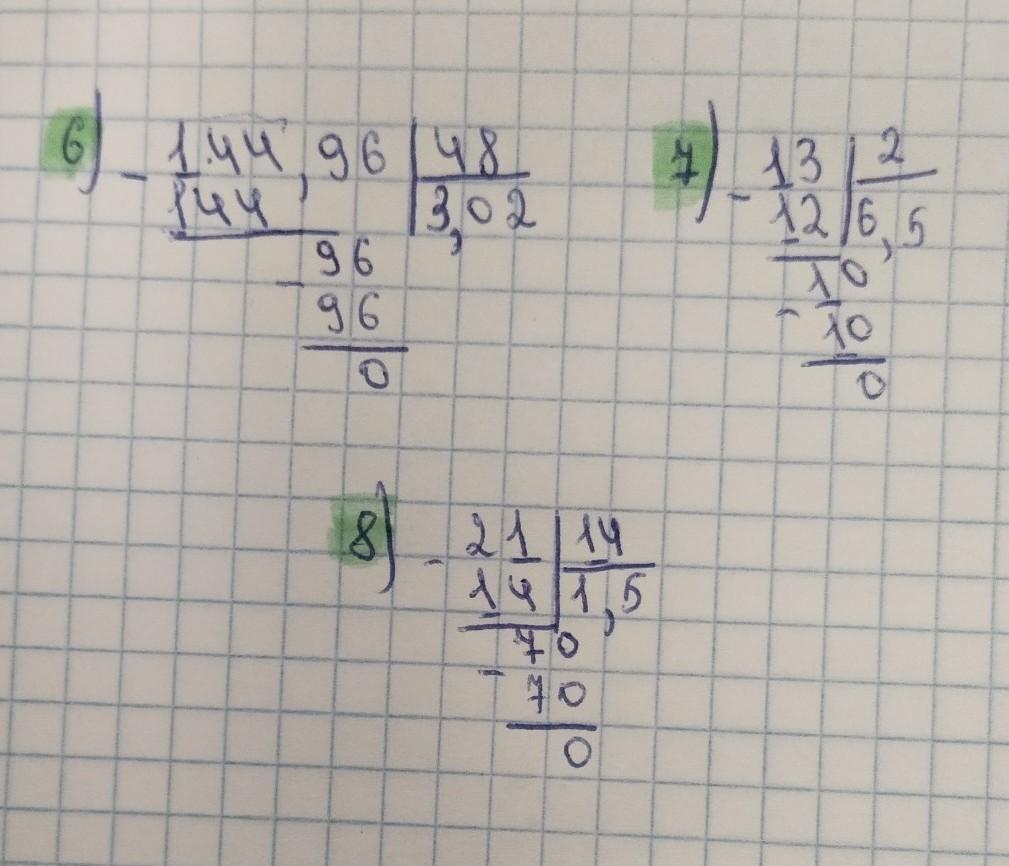 6) - 144,96 | 48
144 | 3,02
- 96
96
0
7) - 13 | 2
12 | 6,5
- 10
10
0
8) - 21 | 14
14 | 1,5
- 70
70
0